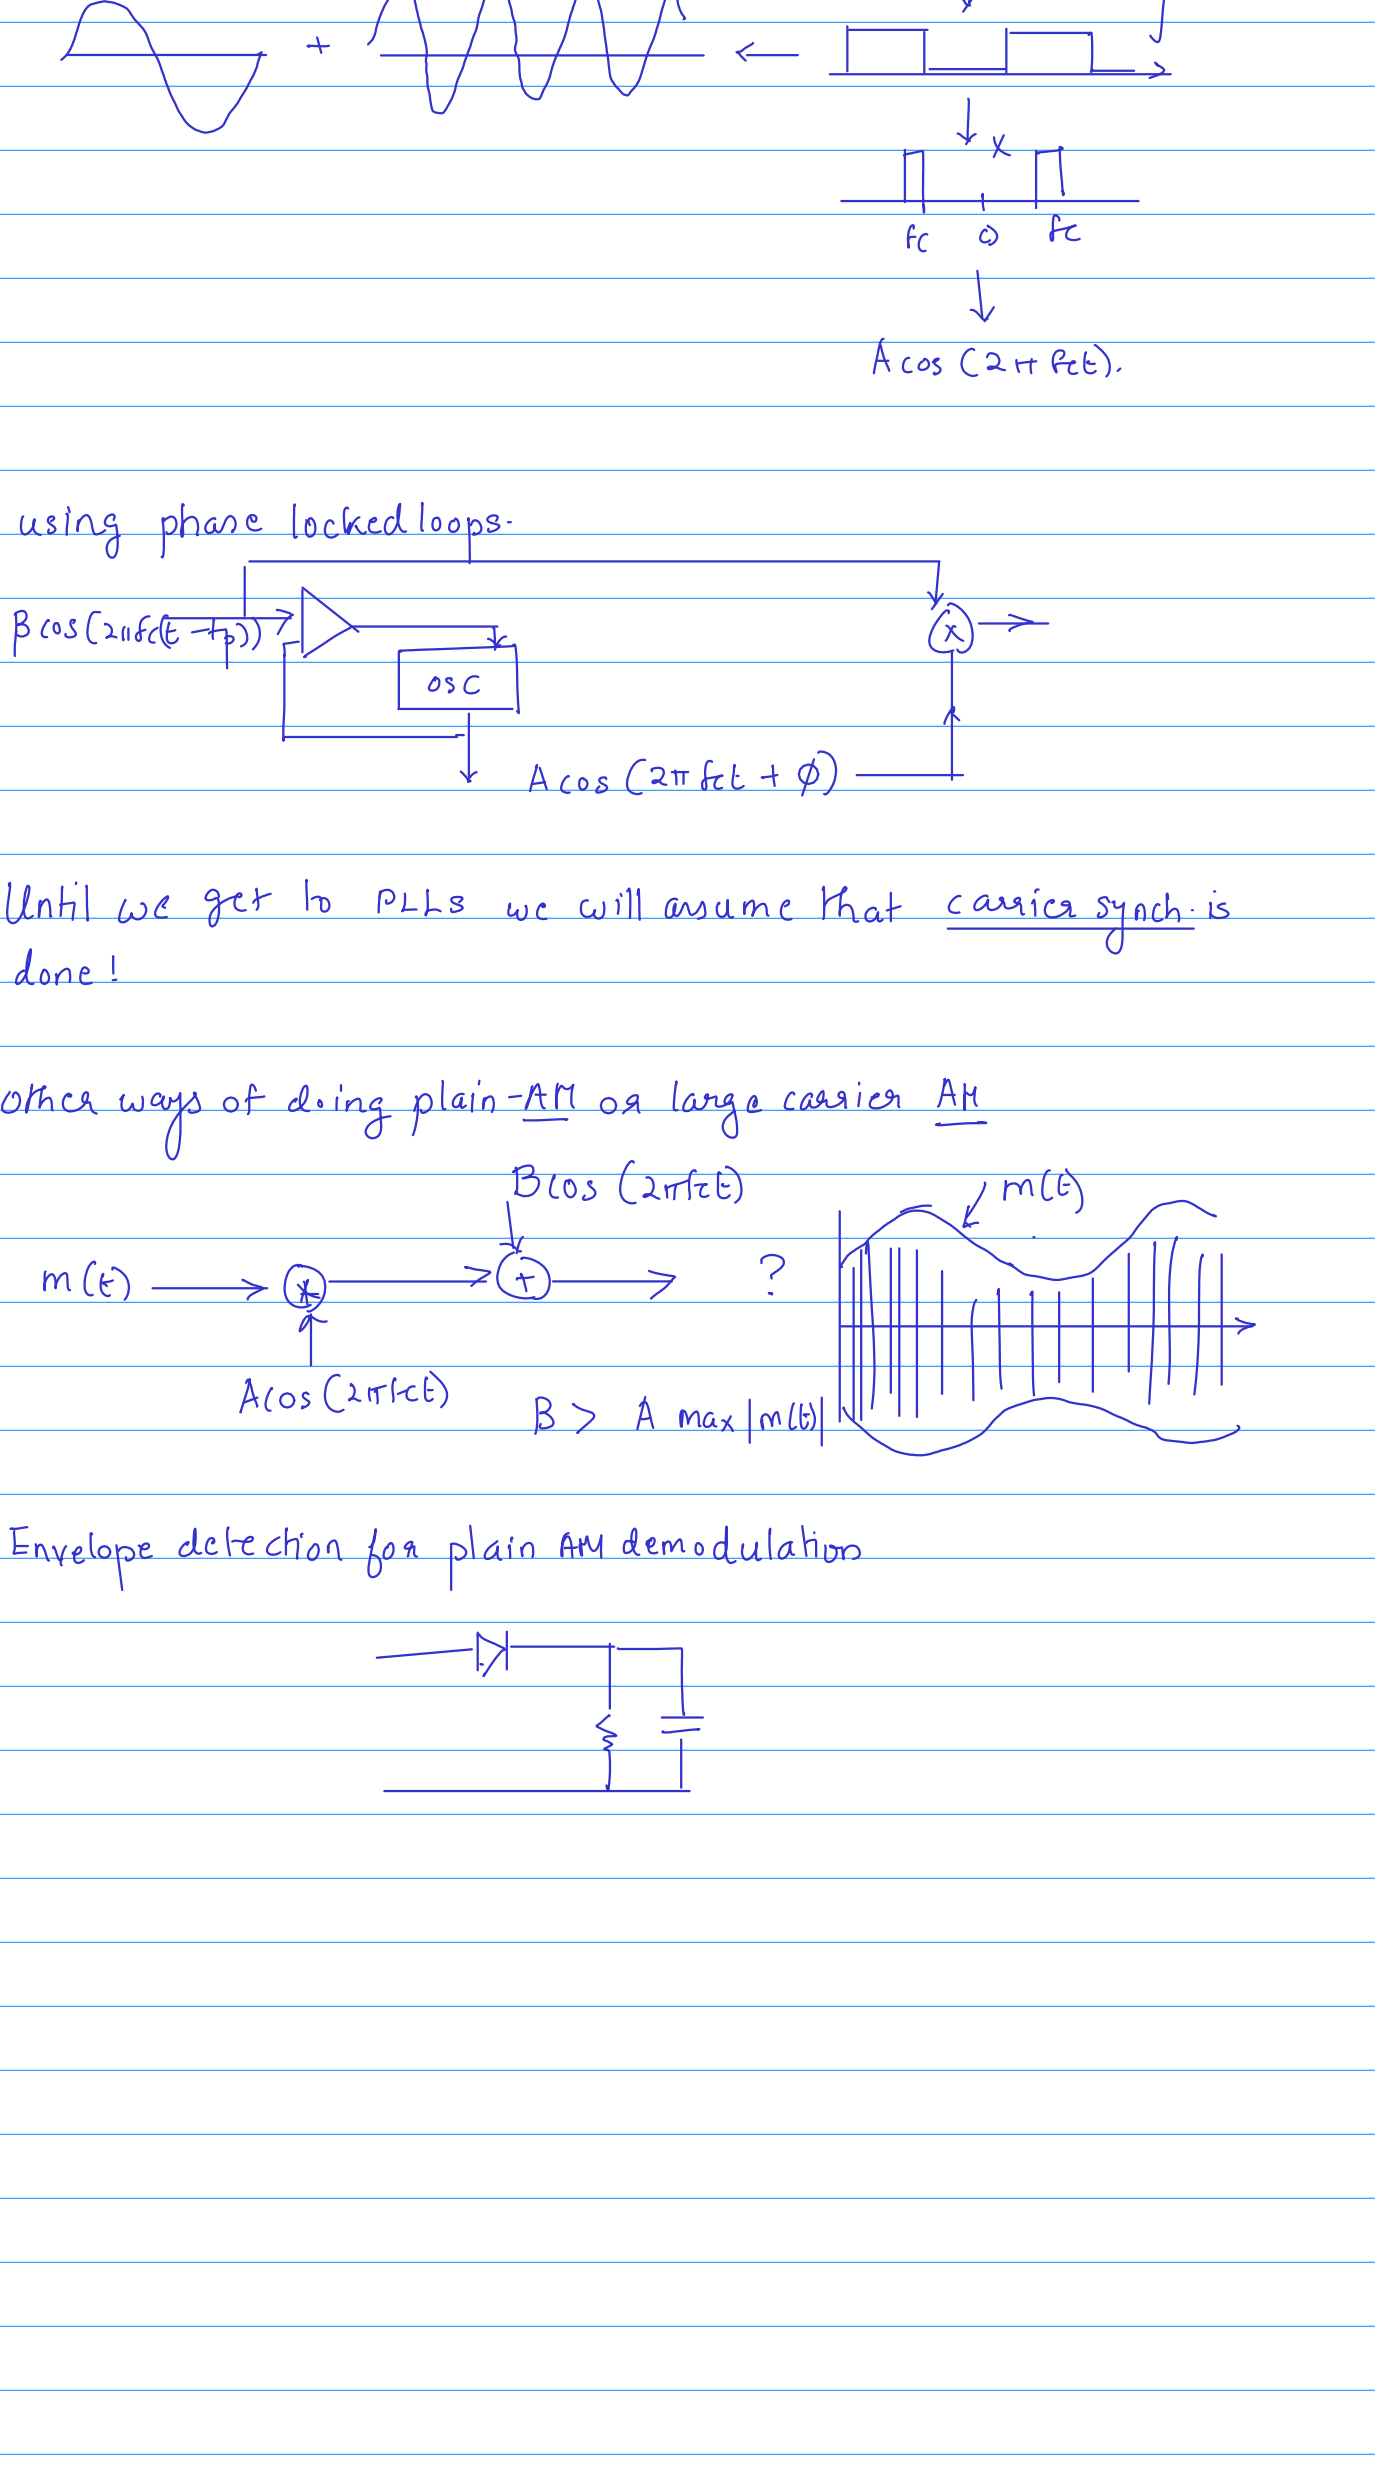 +
x
fc 0 fc
A cos (2π fct).
using phase locked loops.
B cos(2πfc(t - tp))
x
osc
A cos (2π fct + ϕ)
Until we get to PLLs we will assume that carrier synch. is
done!
other ways of doing plain-AM or large carrier AM
B cos (2πfct)
m(t)
m(t)
x
+
?
A cos (2πfct)
B > A max |m(t)|
Envelope detection for plain AM demodulation